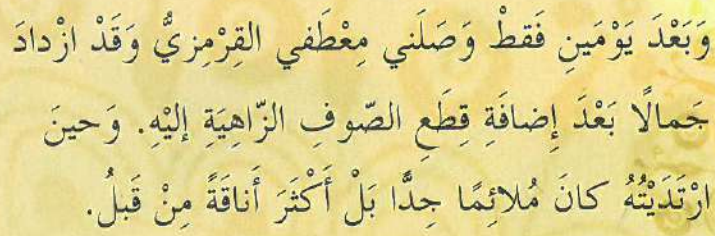 وَبَعْدَ يَوْمَينِ فَقطْ وَصَلَني مِعْطَفي القِرْمِزيُّ وَقَدْ ازْدادَ
جَمالًا بَعْدَ إِضافَةِ قِطَعِ الصّوفِ الزّاهِيَةِ إليْهِ. وَحينَ
ارْتَدَيْتُهُ كانَ مُلائِمًا جِدًّا بَلْ أَكْثَرَ أَناقَةً مِنْ قَبلُ.